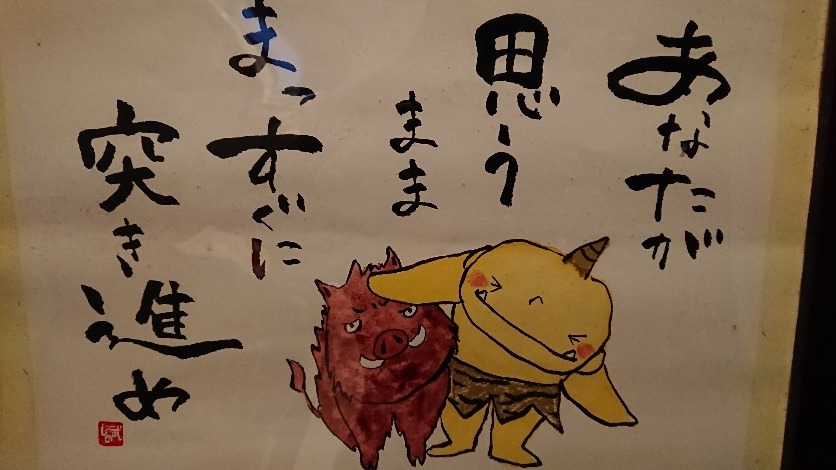 あなたが
思う
まま
まっすぐに
突き進め